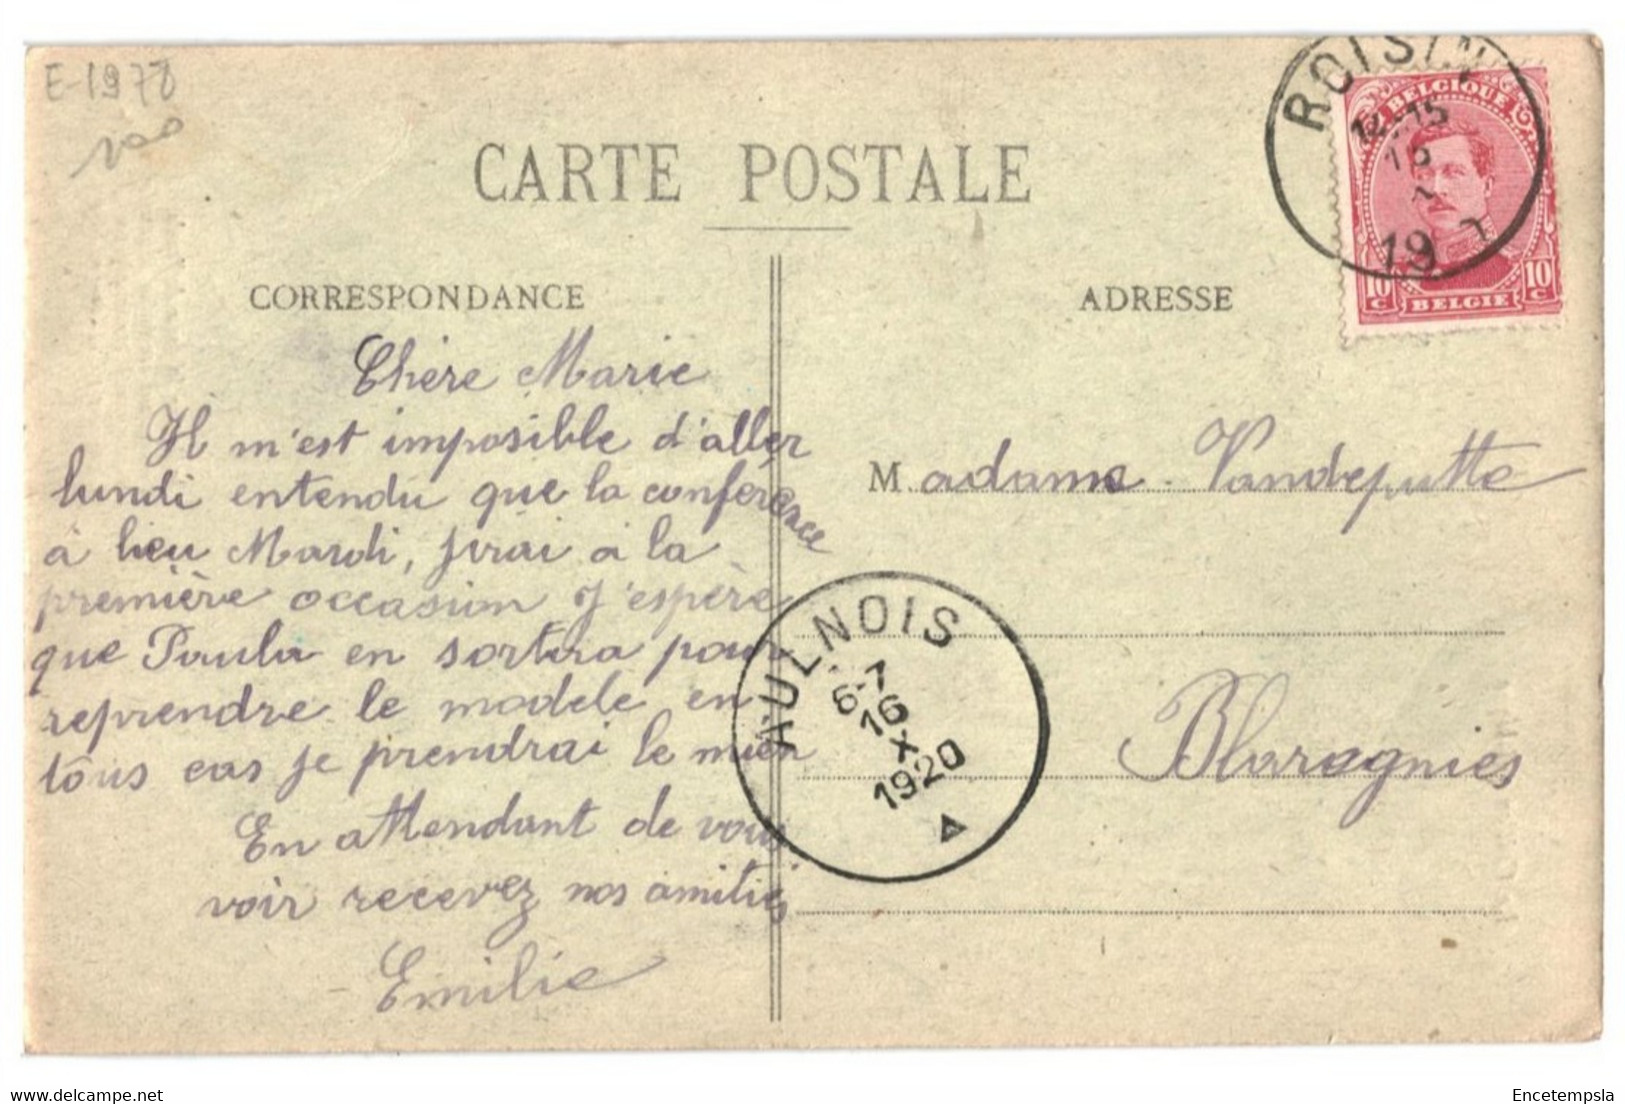 E-1978
100
CARTE POSTALE
CORRESPONDANCE
ADRESSE
ROISIN
14-15
16
19
BELGIQUE
10 C
BELGIE
10 C
Chère Marie
Il m'est imposible d'aller
lundi entendu que la conference
à lieu Mardi, j'irai a la
première occasion J'espère
que Paula en sortira pour
reprendre le modele en
tous cas je prendrai le mien
En attendant de vous
voir recevez nos amitiés
Emilie
Madame Vandeputte
Blaregnies
AULNOIS
6-7
16
X
1920
Delcampe.net
Encetempsla